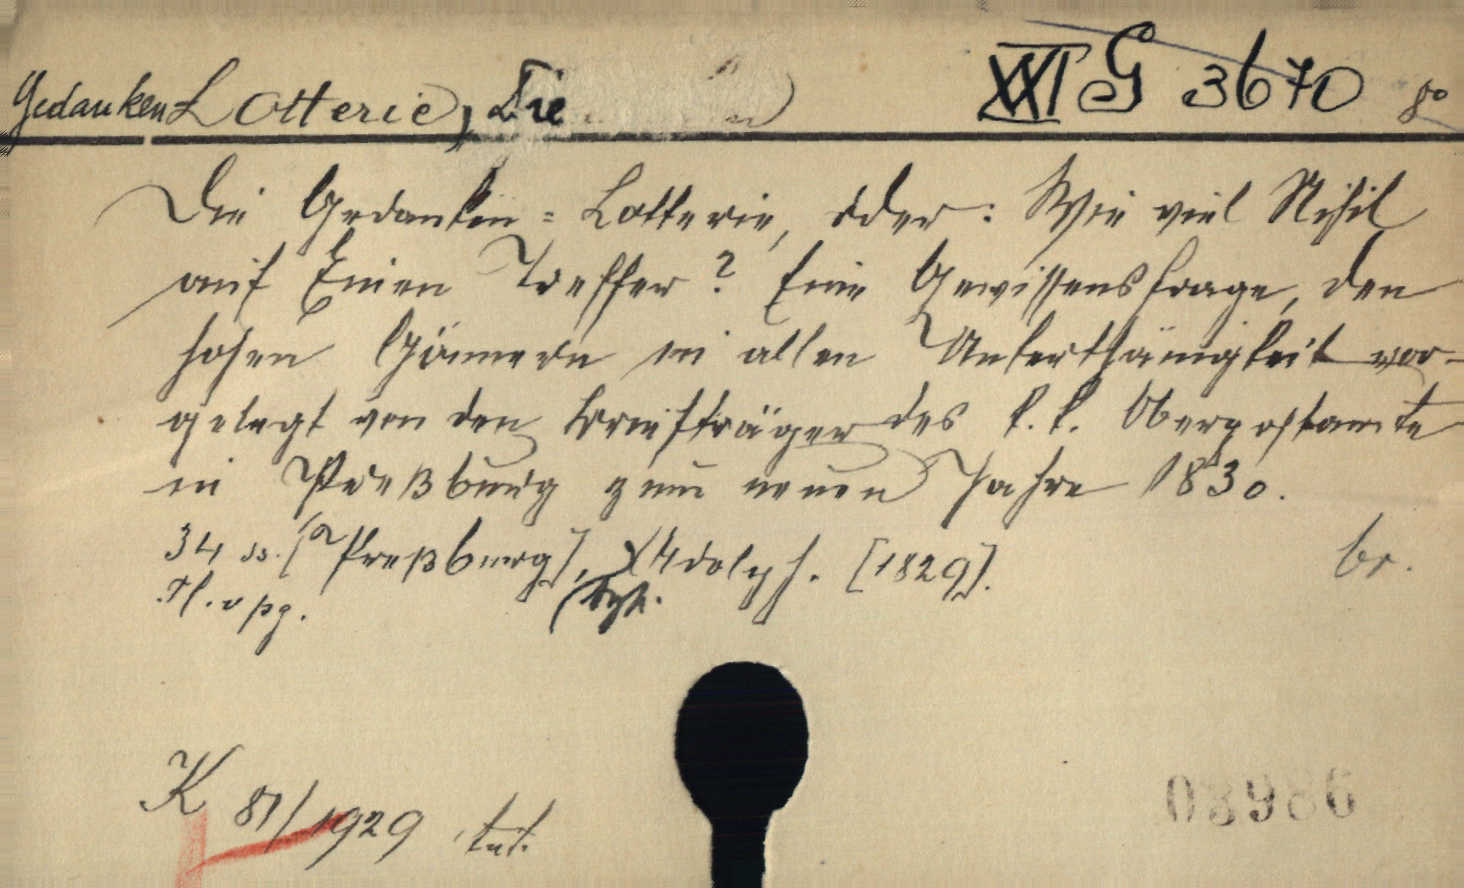 Gedanken Lotterie, Die XVI G 3670 8°
Die Gedanken=Lotterie, oder: Wie viel Nihil
auf Einen Treffer? Eine Gewissensfrage, den
hohen Gönnern in allen Unterthänigkeit vor-
gelegt von den Briefträger des k. k. Oberpostamte
in Preßburg zum neuen Jahre 1830.
34 SS. [Preßburg], Adolph. [1829].
br.
K 81/1929
03986